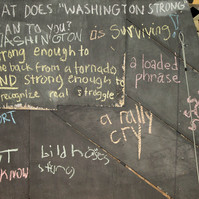 AT DOES "WASHINGTON STRONG"
AN TO YOU?
WASHINGTON is surviving!
rong enough to
me back from a tornado
AND strong enough to
recognize real struggle
a loaded
phrase
ORT
a rally
cry
KNOW
strong